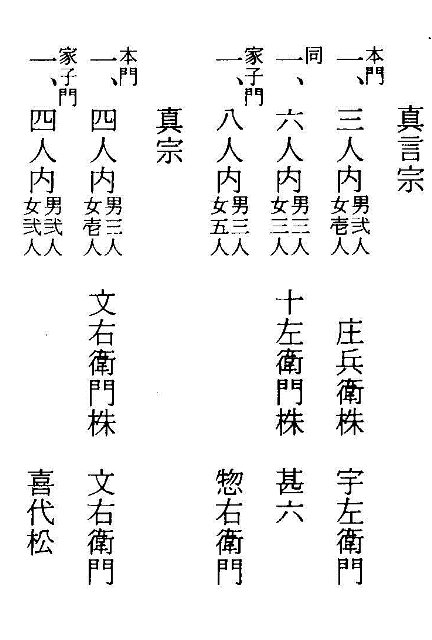 真言宗
本門
一、三人内男弐人女壱人 庄兵衛株 宇左衛門
同
一、六人内男三人女三人 十左衛門株 甚六
家子門
一、八人内男三人女五人 惣右衛門
真宗
本門
一、四人内男三人女壱人 文右衛門株 文右衛門
家子門
一、四人内男弐人女弐人 喜代松